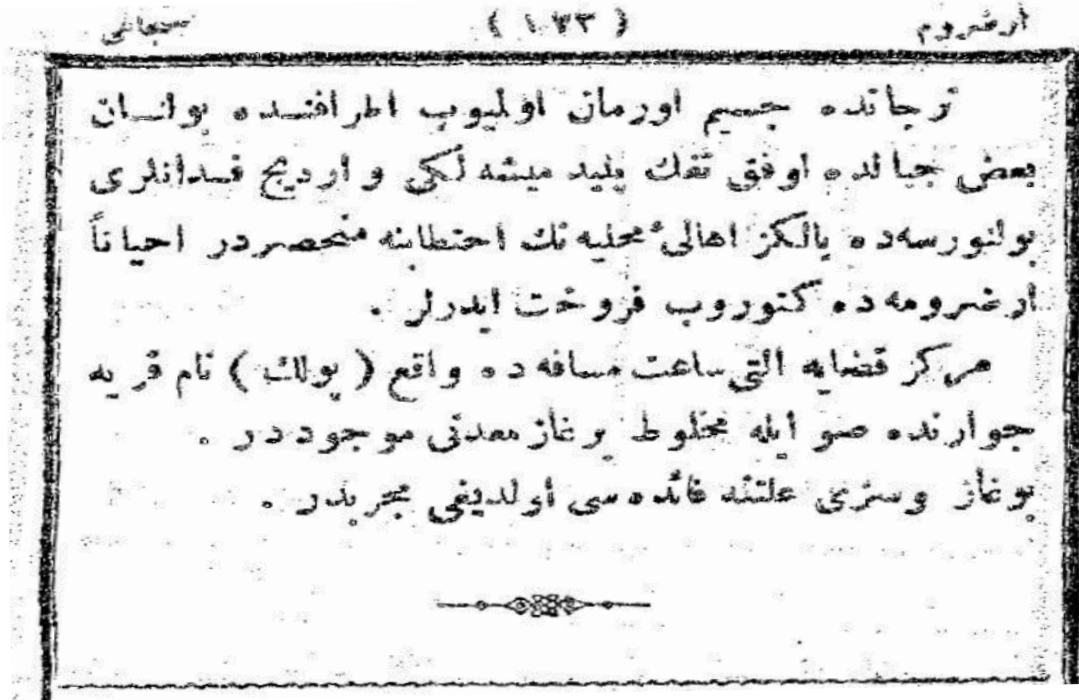 ارضروم ( ١٠٣٣ ) سنجاغی
ترجانده جسیم اورمان اولمیوب اطرافنده بولنان
بعض جبالده اوفق تفك پلید میشه لكی و اردیج فدانلری
بولنورسه ده یالكز اهالیٔ محلیه نك احتطابنه منحصردر احیاناً
ارضرومه ده كتوروب فروخت ایدرلر .
مركز قضایه التی ساعت مسافه ده واقع ( پولك ) نام قریه
جوارنده صو ایله مخلوط بر غاز معدنی موجوددر .
بو غاز وسزی علتنه فائده سی اولدیغی مجربدر .